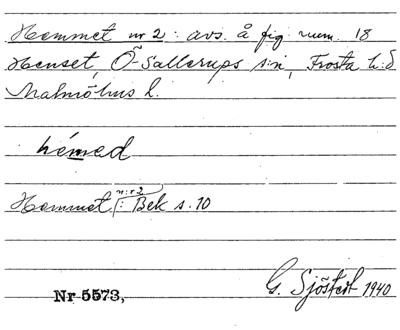 Hemmet nr 2: avs. å fig num. 18
Huset, Ö. Sallerups s:n, Frosta h:d
Malmöhus l.
hémed
n:r 2
Hemmet : Bek s. 10
G. Sjöstedt 1940
Nr 5573,